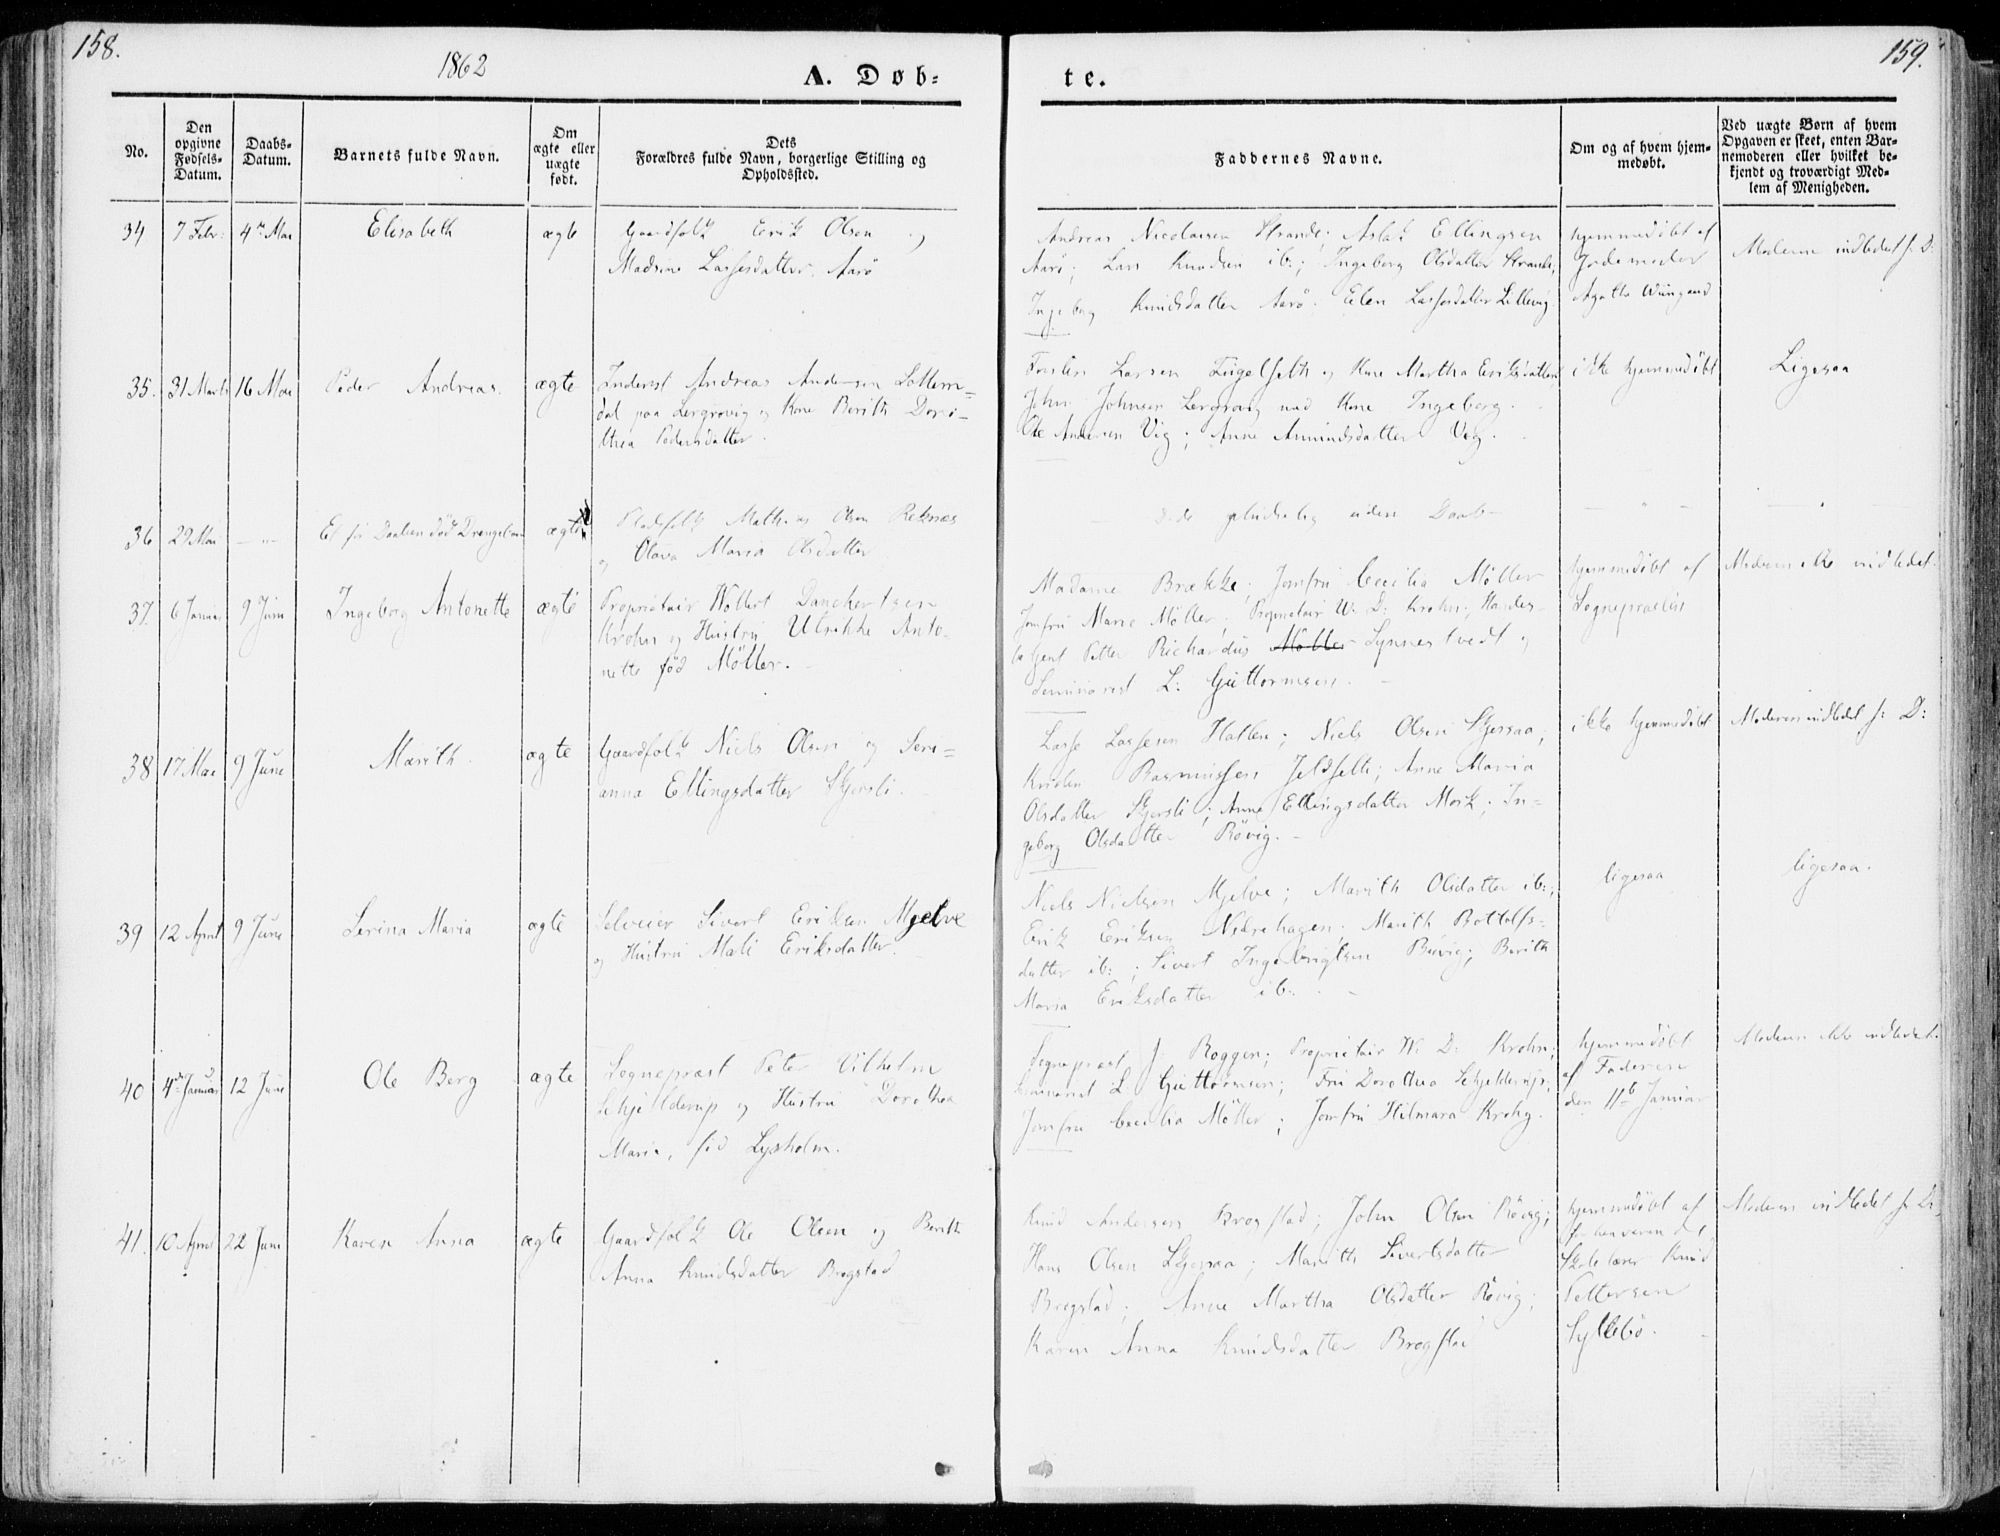 158.
1862
A. Døb-
te.
159.
No.
Den opgivne Fødsels-Datum.
Daabs-Datum.
Barnets fulde Navn.
Om ægte eller uægte født.
Dets
Forældres fulde Navn, borgerlige Stilling og
Opholdssted.
Faddernes Navne.
Om og af hvem hjem-
medøbt.
Ved uægte Børn af hvem
Opgaven er skeet, enten Bar-
nemoderen eller hvilket be-
kjendt og troværdigt Med-
lem af Menigheden.
34 7 Febr: 4de Mai Elisabeth ægte Gaardfolk Erik Olsen og
Madsine Lassesdatter Aarö
Andreas Nicolaisen Strande; Aslak Ellingsen
Aarö; Lars Knudsen ib:; Ingeborg Olsdatter Strande;
Ingeborg Knudsdatter Aarö. Elen Lassesdatter Lillevig
hjemmedöbt af
Jordemoder
Agatha
Moderen indledet f: D:
35. 31 Marts 16 Mai Peder Andreas. ægte Inderst Andreas Andersen
dal paa Lergrovig og Kone Berith Doro-
thea Pedersdatter.
Larsen og Kone Martha Eriksdatter
John Johnsen Lergrovig med Kone Ingeborg.
Ole Andersen Vig; Anne Amundsdatter Vig.
ikke hjemmedöbt
Ligesaa
36 29 Mai - " - Et för Daaben död Drengebarn ægte Pladsfolk Mathias Olsen Reknæs
og Olava Maria Olsdatter
- Döde pludselig uden Daab -
- " -
- " -
37. 6 Januar 9 Juni Ingeborg Antonette ægte Proprietair Wollert Danchertsen
Krohn og Hustru Ulrikke Anto-
nette född Möller. -
Madame Brække; Jomfru Cecilia Möller
Jomfru Marie Möller; Proprietair W: D: Krohn; Handels-
betjent Petter Richardus Möller Synnestvedt og
Seminarist L: Guttormsen. -
hjemmedöbt af
Sognepræsten
Moderen ikke indledet.
38 17 Mai 9 June Marith. ægte Gaardfolk Niels Olsen og Seri-
anna Ellingsdatter Skjersli. -
Lasse Lassesen Hatlen; Niels Olsen Skjersaa;
Kristen Rasmussen; Anne Maria
Olsdatter Skjersli; Anne Ellingsdatter Mork; In-
geborg Olsdatter Rövig. -
ikke hjemmedöbt
Moderen indledet f: D:
39 12 April 9 June Serina Maria ægte Selveier Sivert Eriksen Mjelve
og Hustru Mali Eriksdatter.
Niels Nielsen Mjelve; Marith Olsdatter ib:;
Erik Eriksen Nedrehagen; Marith Bottolfs-
datter ib:; Sivert Ingebrigtsen; Berith
Maria Eriksdatter ib: -
ligesaa
ligesaa.
40 4de Januar 12 June Ole Berg ægte Sognepræst Peter Vilhelm
Schjelderup og Hustru Dorothea
Maria, föd Lysholm.
Sognepræst J: Roggen; Proprietair W: D: Krohn;
Seminarist L: Guttormsen; Fru Dorothea Schjelderup;
Jomfru Cecilia Möller; Jomfru Hilmara Krohn.
hjemmedöbt
af Faderen
den 11te Januar
Moderen ikke indledet.
41. 10 April 22 Juni Karen Anna ægte Gaardfolk Ole Olsen og Berith
Anna Knudsdatter Bregstad
Knud Andersen Bregstad; John Olsen Rövig;
Hans Olsen Skjersaa; Marith Sivertsdatter
Bregstad; Anne Martha Olsdatter Rövig;
Karen Anna Knudsdatter Bregstad
hjemmedöbt af
forhenværende
Skolelærer Knud
Pettersen
Syltebö.
Moderen indledet f: D: